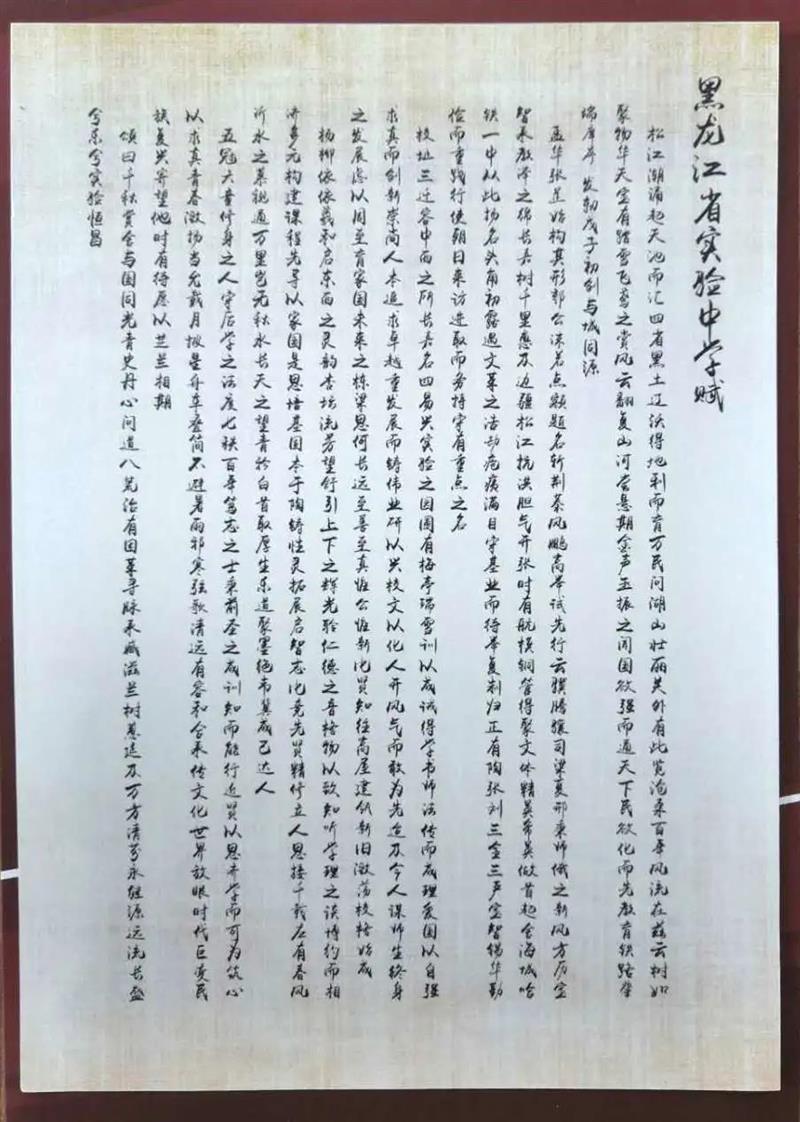 黑龙江省实验中学赋
松江潮涌起天池而汇四省黑土辽沃得地利而育万民问湖山壮丽关外有此览沧桑百年风流在兹云树如
聚物华天宝有踏雪飞鸿之赏风云翻复山河尝悬期金声玉振之闻国欲强而通天下民欲化而先教育铁路肇
瑞庠序发轫戊子初创与城同源
孟华张芷始构其形郭公沫若点额题名斩荆棘风鹏高举试先行云骥腾骧司梁夏邢秉师俄之新风方历宝
智承教泽之绵长嘉树千里惠及边疆松江抗洪胆气开张时有航模铜管得聚文体精英常英俶昔赴会海城哈
铁一中从此扬名头角初露遇文革之浩劫疮痍满目守基业而待举复制归正有陶张刘三金三尹宝智锡华勤
俭而重践行使朝日来访进取而秀持字有重点之名
校址三迁容中西之所长嘉名四易兴实验之因国有梅亭瑞雪训以成诚得学书师法传而成理爱国以自强
求真而创新崇尚人本追求卓越重发展而铸伟业研以兴校文以化人开风气而敢为先迨及今人谋师生终身
之发展虑以周至育家国未来之栋梁思何长远至善至真惟公惟新比贤知往高屋建瓴新旧激荡校格始成
杨柳依依羲和启东西之灵韵杏坛流芳望舒引上下之辉光聆仁德之音格物以致知听学理之谈博约而相
济多元构建课程先导以家国是思培基固本于陶铸性灵拓展启智志比竞先贤精修立人思接千载左有春风
沂水之慕视通万里岂无秋水长天之望青衿白首敢厚生乐道聚墨绝韦冀成己达人
五冠六童修身之人守后学之法度七秩百年笃志之士秉前圣之成训知而能行近贤以思齐学而可为筑心
以求真青春激扬当允载月披星舟车叠简不避暑雨祁寒弦歌清远有容和合承传文化世界放眼时代巨变民
族复兴寄望他时有待愿以芝兰相期
颂曰千秋赏会与国同光青史丹心问道八荒治有因革寻脉承臧滋兰树蕙延及万方清芬永继源远流长盛
兮乐兮实验恒昌